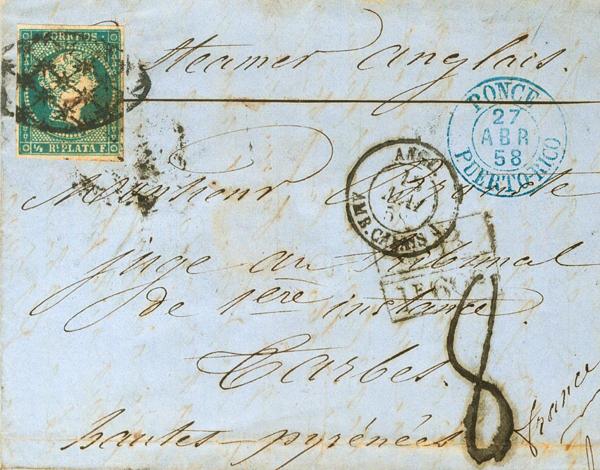 CORREOS
½ Rl PLATA F.
Steamer anglais.
PONCE
27
ABR
58
PUERTO-RICO
ANGL.
MAI
AMB. CALAIS
Monsieur
juge au Tribunal
de 1ère instance
Tarbes.
hautes-pyrénées
france
8